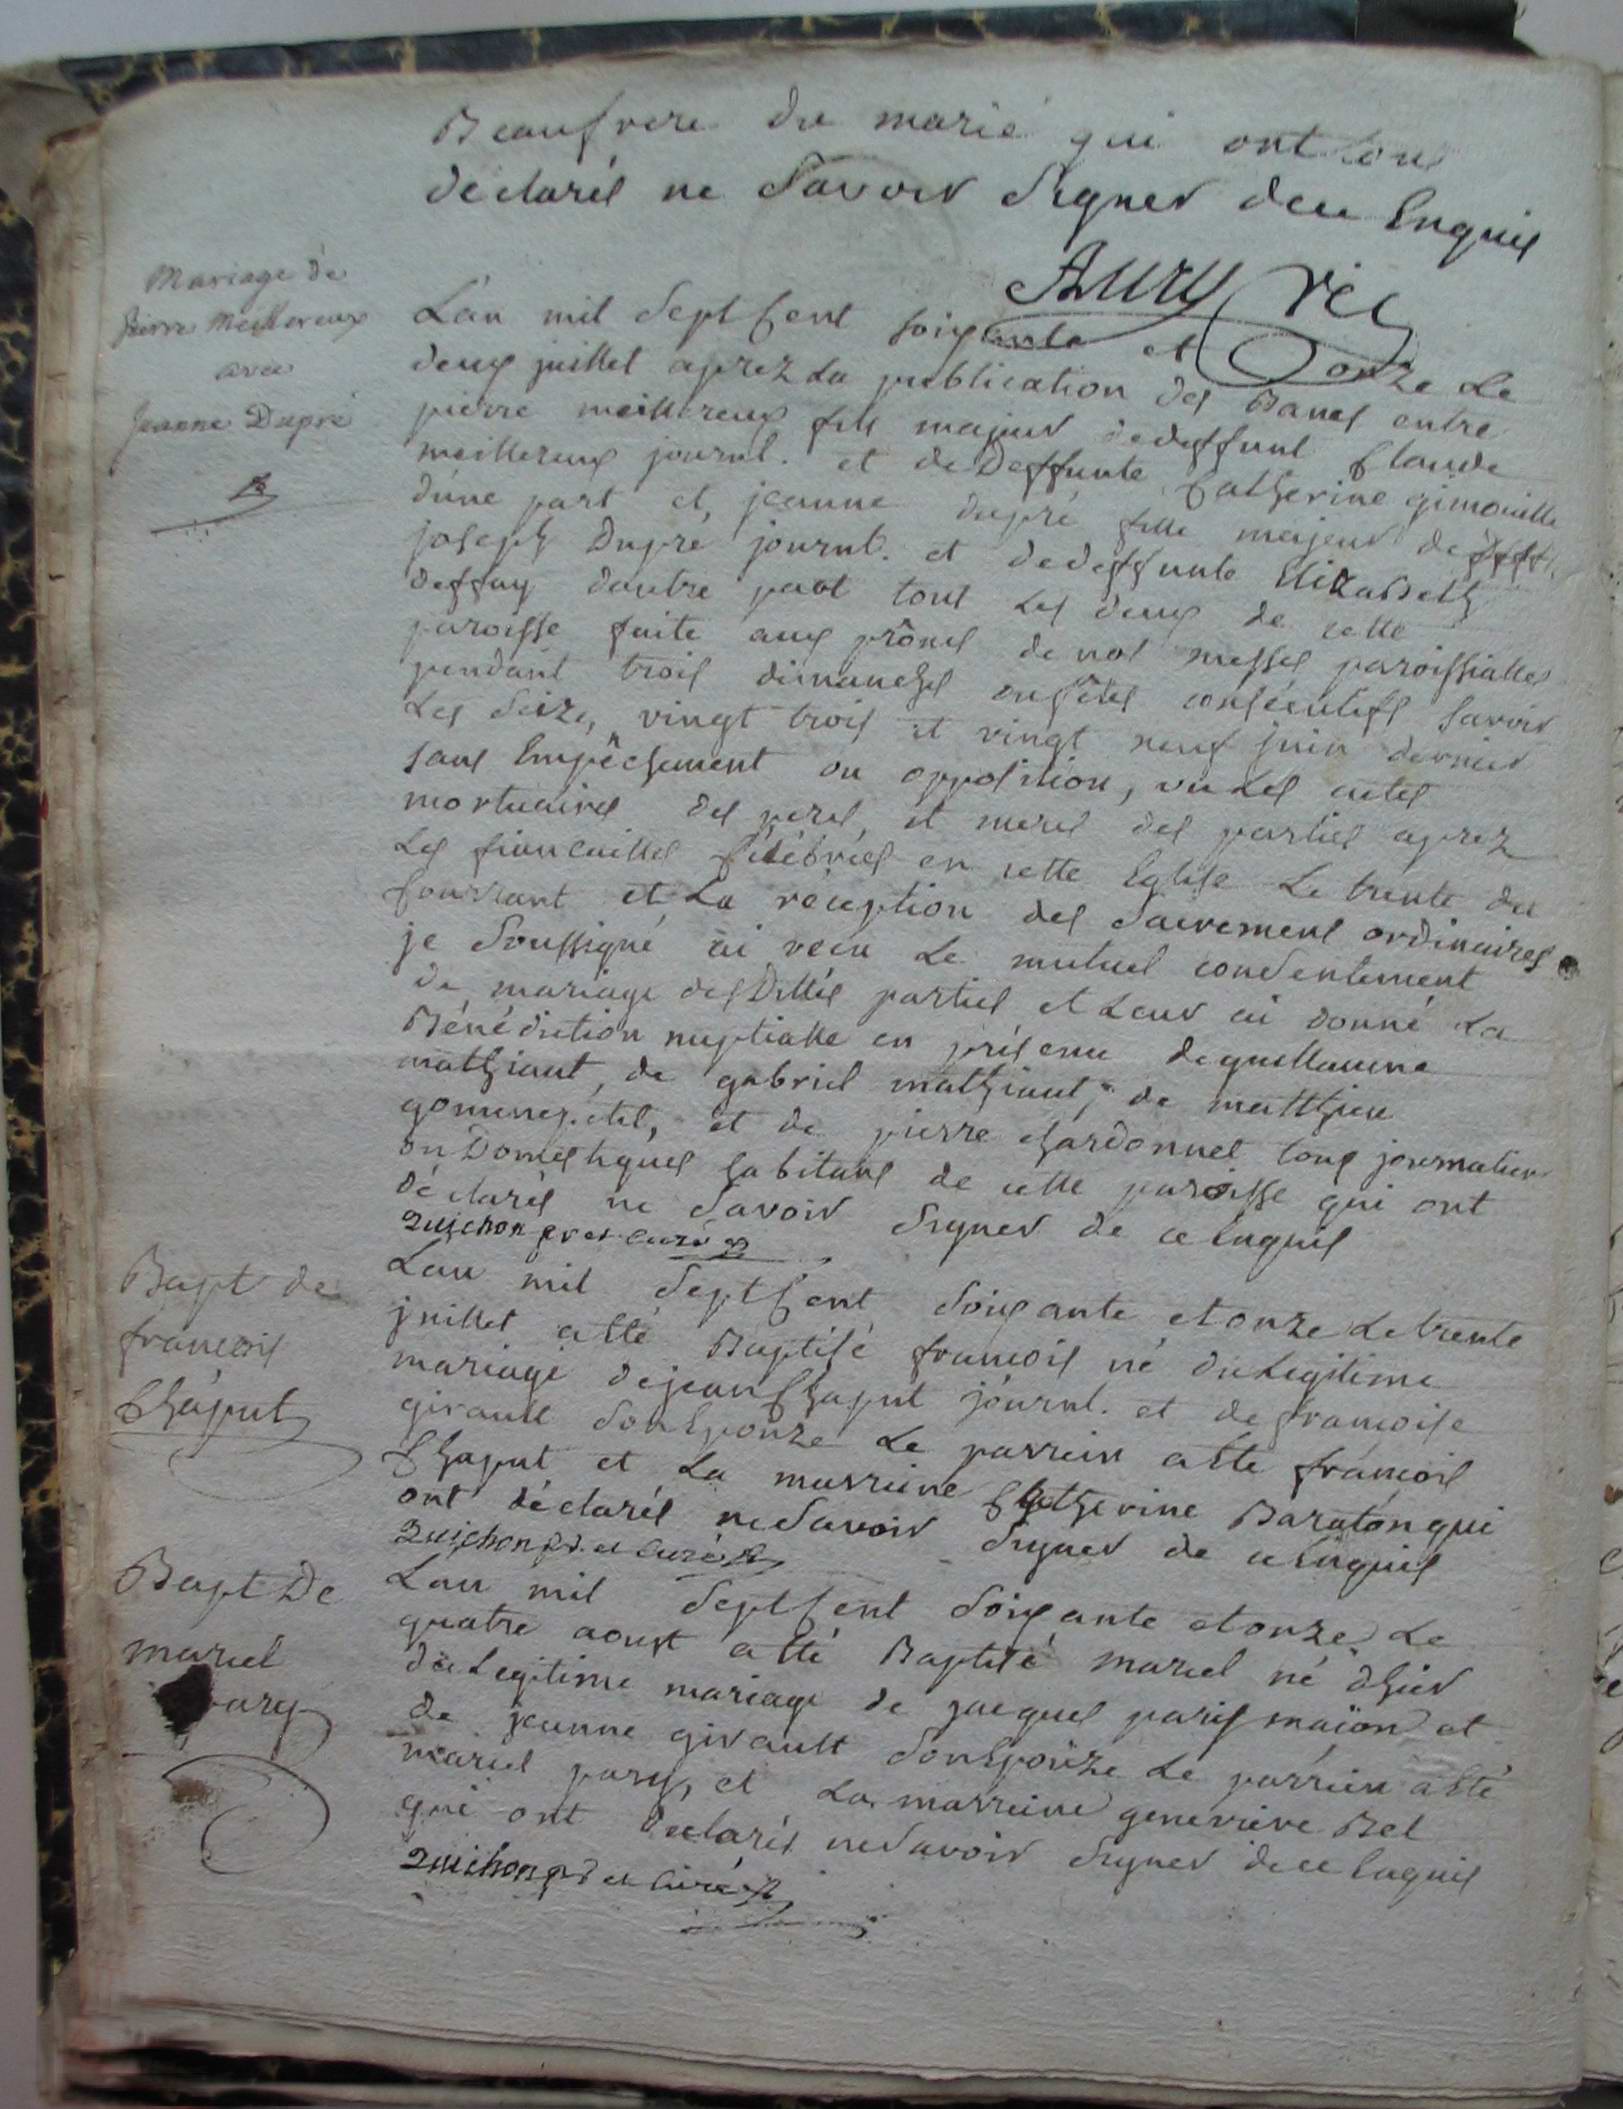 Beaufrere du marié qui ont tous
déclarés ne Savoir Signer dece Enquis
Aury vic
Mariage de
pierre Meillereux
avec
Jeanne Dupré
L'an mil Sept Cent soixante et onze Le
deux juillet aprez La publication des Bancs entre
pierre meillereux fils majeur dedeffunt Claude
meillereux journl. et de Deffunte Catherine gimouille
d'une part et, jeanne dupré fille majeur de
joseph Dupré journl. et dedeffunte Elizabeth
deffay dautre part tout Les deux de cette
paroisse faite aux prônes de nos messes paroissialles
pendant trois dimanches ou fêtes consécutifs savoir
Les Seize, vingt trois et vingt neuf juin dernier
sans Empêchement ou opposition, vu Les actes
mortuaires des peres, et meres des parties aprez
Les fiancailles Célébrées en cette Eglise Le trente du
Courrant et La réception des Sacrement ordinaires
je Soussigné ai recu Le mutuel consentement
de mariage desDittes parties et Leur ai donné La
Bénédiction nuptialle en présence deguillaume
mathiaut, de gabriel mathiaut, de matthieu
et de pierre chardonnet tous journalier
ou Domestiques habitans de cette paroisse qui ont
déclarés ne Savoir Signer de ce Enquis
Quichon pr et curé
Bapt de
francois
Chaput
Lan mil Sept Cent Soixante etonze Letrente
juillet a été Baptisé francois né duLegitime
mariage dejean Chaput journl. et de francoise
girault SonEpouze Le parrein a été francois
Chaput et La marreine Catherine Baratonqui
ont déclarés neSavoir Signer de ce Enquis
Quichon pr. et curé
Bapt De
marcel
pary
Lan mil Sept Cent Soixante etonze Le
quatre aoust a été Baptisé marcel né d'hier
duLegitime mariage de jacques parys maçon et
de jeanne girault SonEpouze Le parrein a été
marcel parys, et La marreine genevieve Bel
qui ont declarés neSavoir Signer dece Enquis
Quichon pr et curé